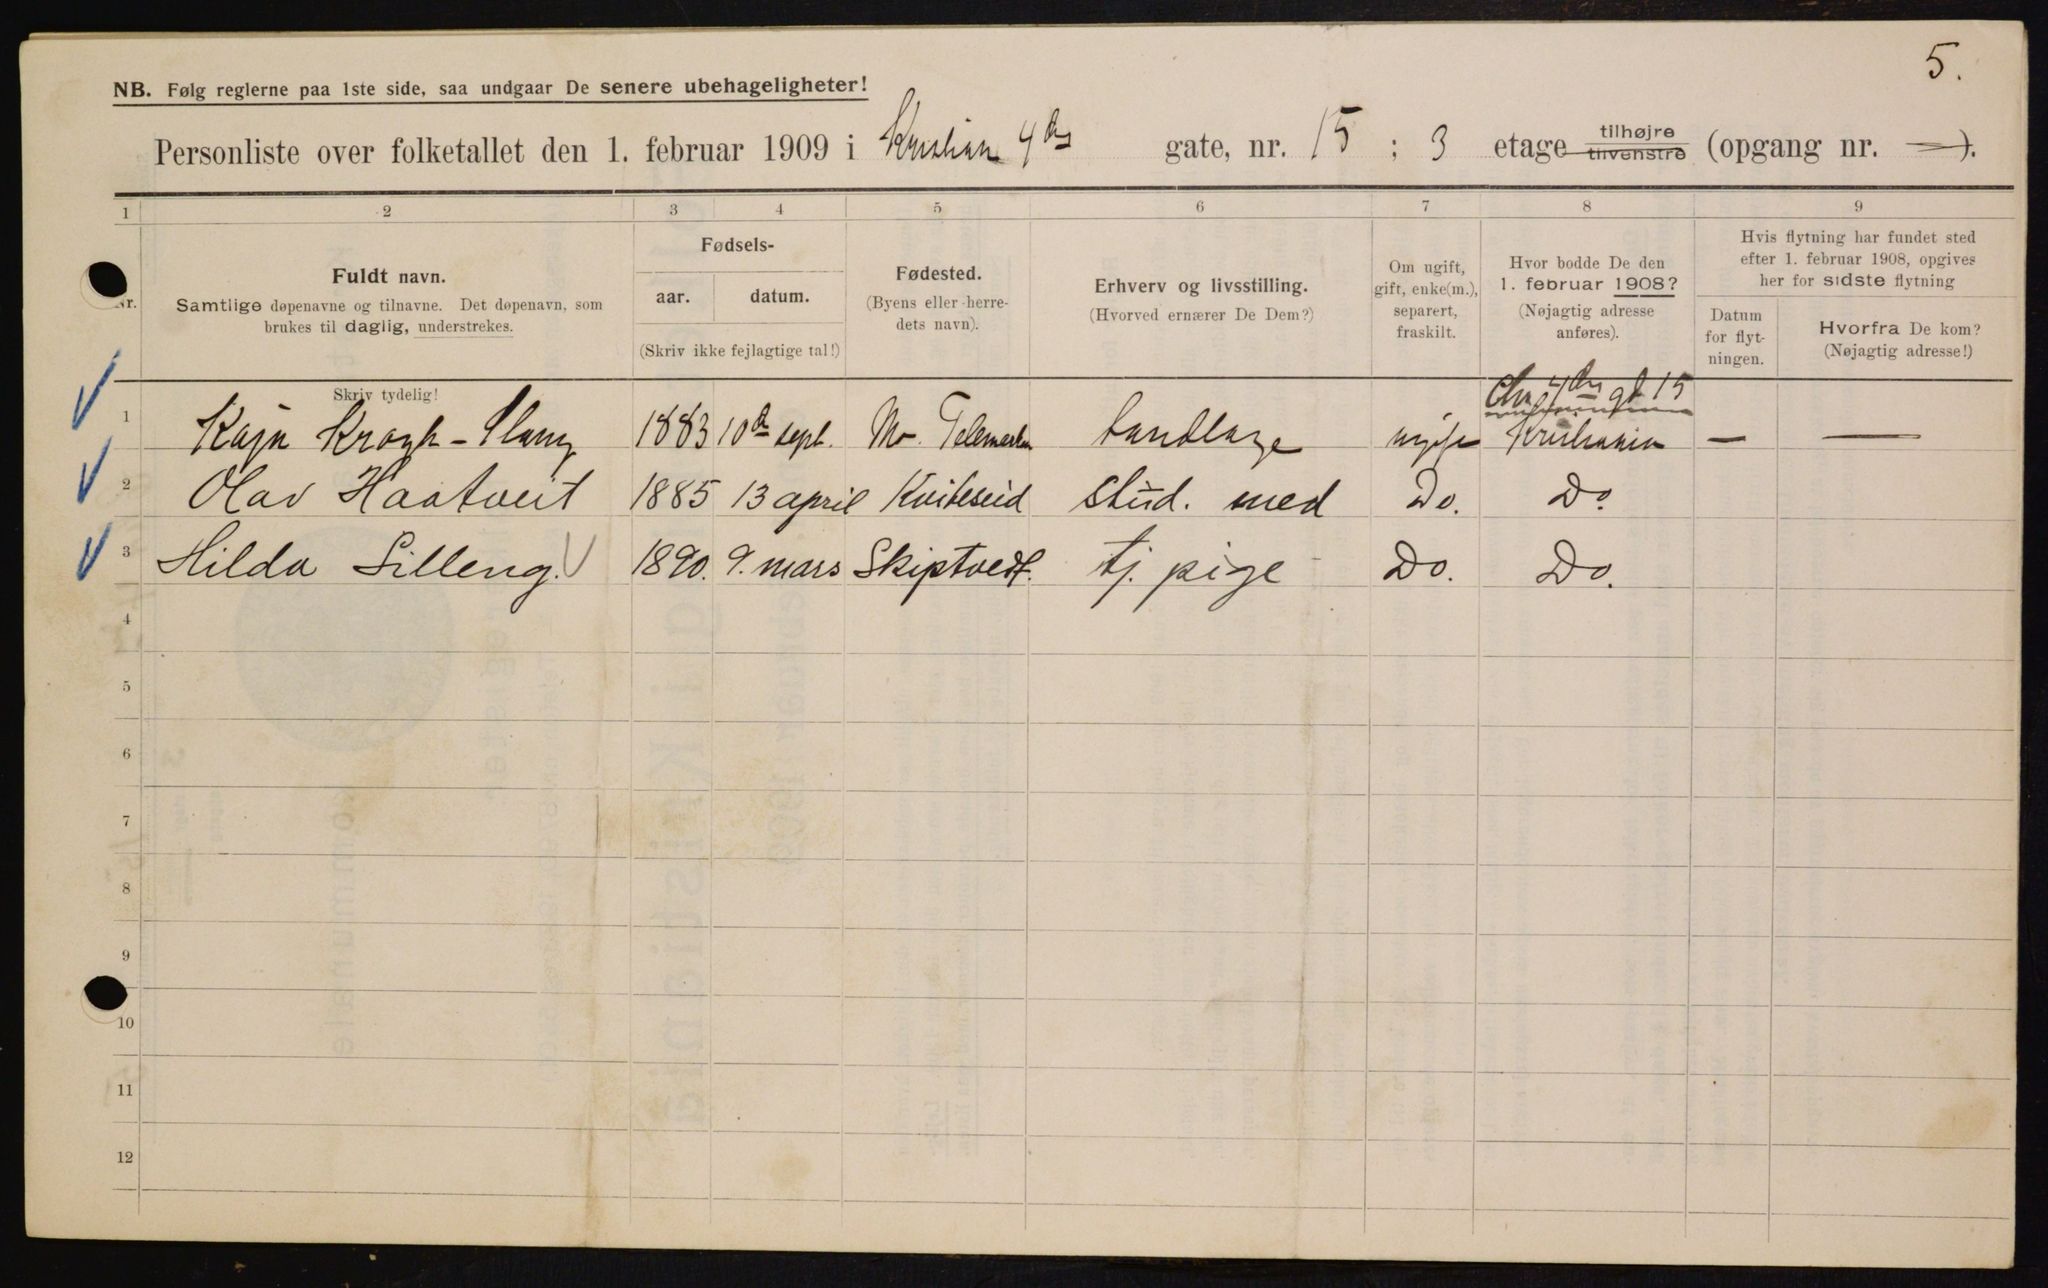 5.
NB. Følg reglerne paa 1ste side, saa undgaar De senere ubehageligheter!
Personliste over folketallet den 1. februar 1909 i Kristian 4des gate, nr. 15; 3 etage tilhøjre tilvenstre (opgang nr. —).
1 2 3 4 5 6 7 8 9
Nr.
Fuldt navn.
Samtlige døpenavne og tilnavne. Det døpenavn, som
brukes til daglig, understrekes.
Skriv tydelig!
Fødsels-
aar. datum.
(Skriv ikke fejlagtige tal!)
Fødested.
(Byens eller herre-
dets navn).
Erhverv og livsstilling.
(Hvorved ernærer De Dem?)
Om ugift,
gift, enke(m.),
separert,
fraskilt.
Hvor bodde De den
1. februar 1908?
(Nøjagtig adresse
anføres).
Hvis flytning har fundet sted
efter 1. februar 1908, opgives
her for sidste flytning
Datum
for flyt-
ningen.
Hvorfra De kom?
(Nøjagtig adresse!)
Chr 4des gt 15
1 Kaja Krogh - 1883 10de sept. Telemarken tandlæge ugift Kristiania — —
2 Olav Haatveit 1885 13 april Kviteseid stud. med Do. Do.
3 Hilda Lilleng. 1890. 9. mars Skiptvedt. tj. pige Do. Do.
4
5
6
7
8
9
10
11
12